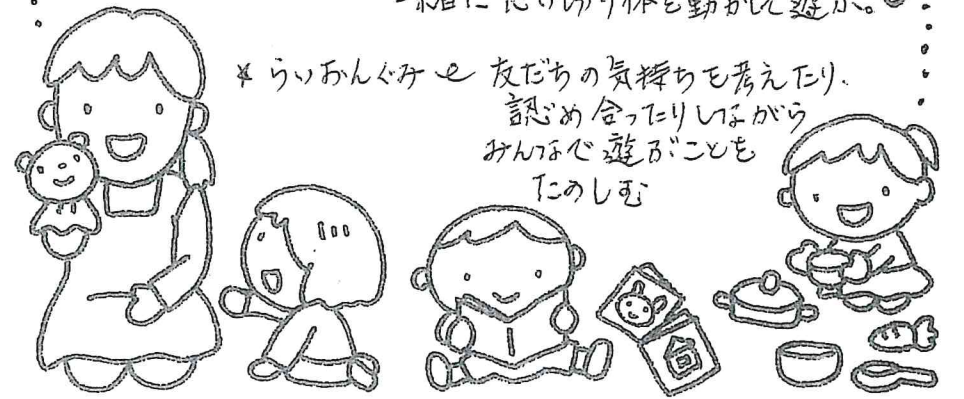 一緒に思い切り体を動かして遊ぶ。
* らいおんぐみ 友だちの気持ちを考えたり、
認め合ったりしながら
みんなで遊ぶことを
たのしむ